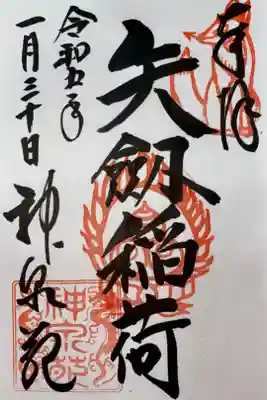 奉拝
矢劔稲荷
令和五年
一月三十日
神泉苑